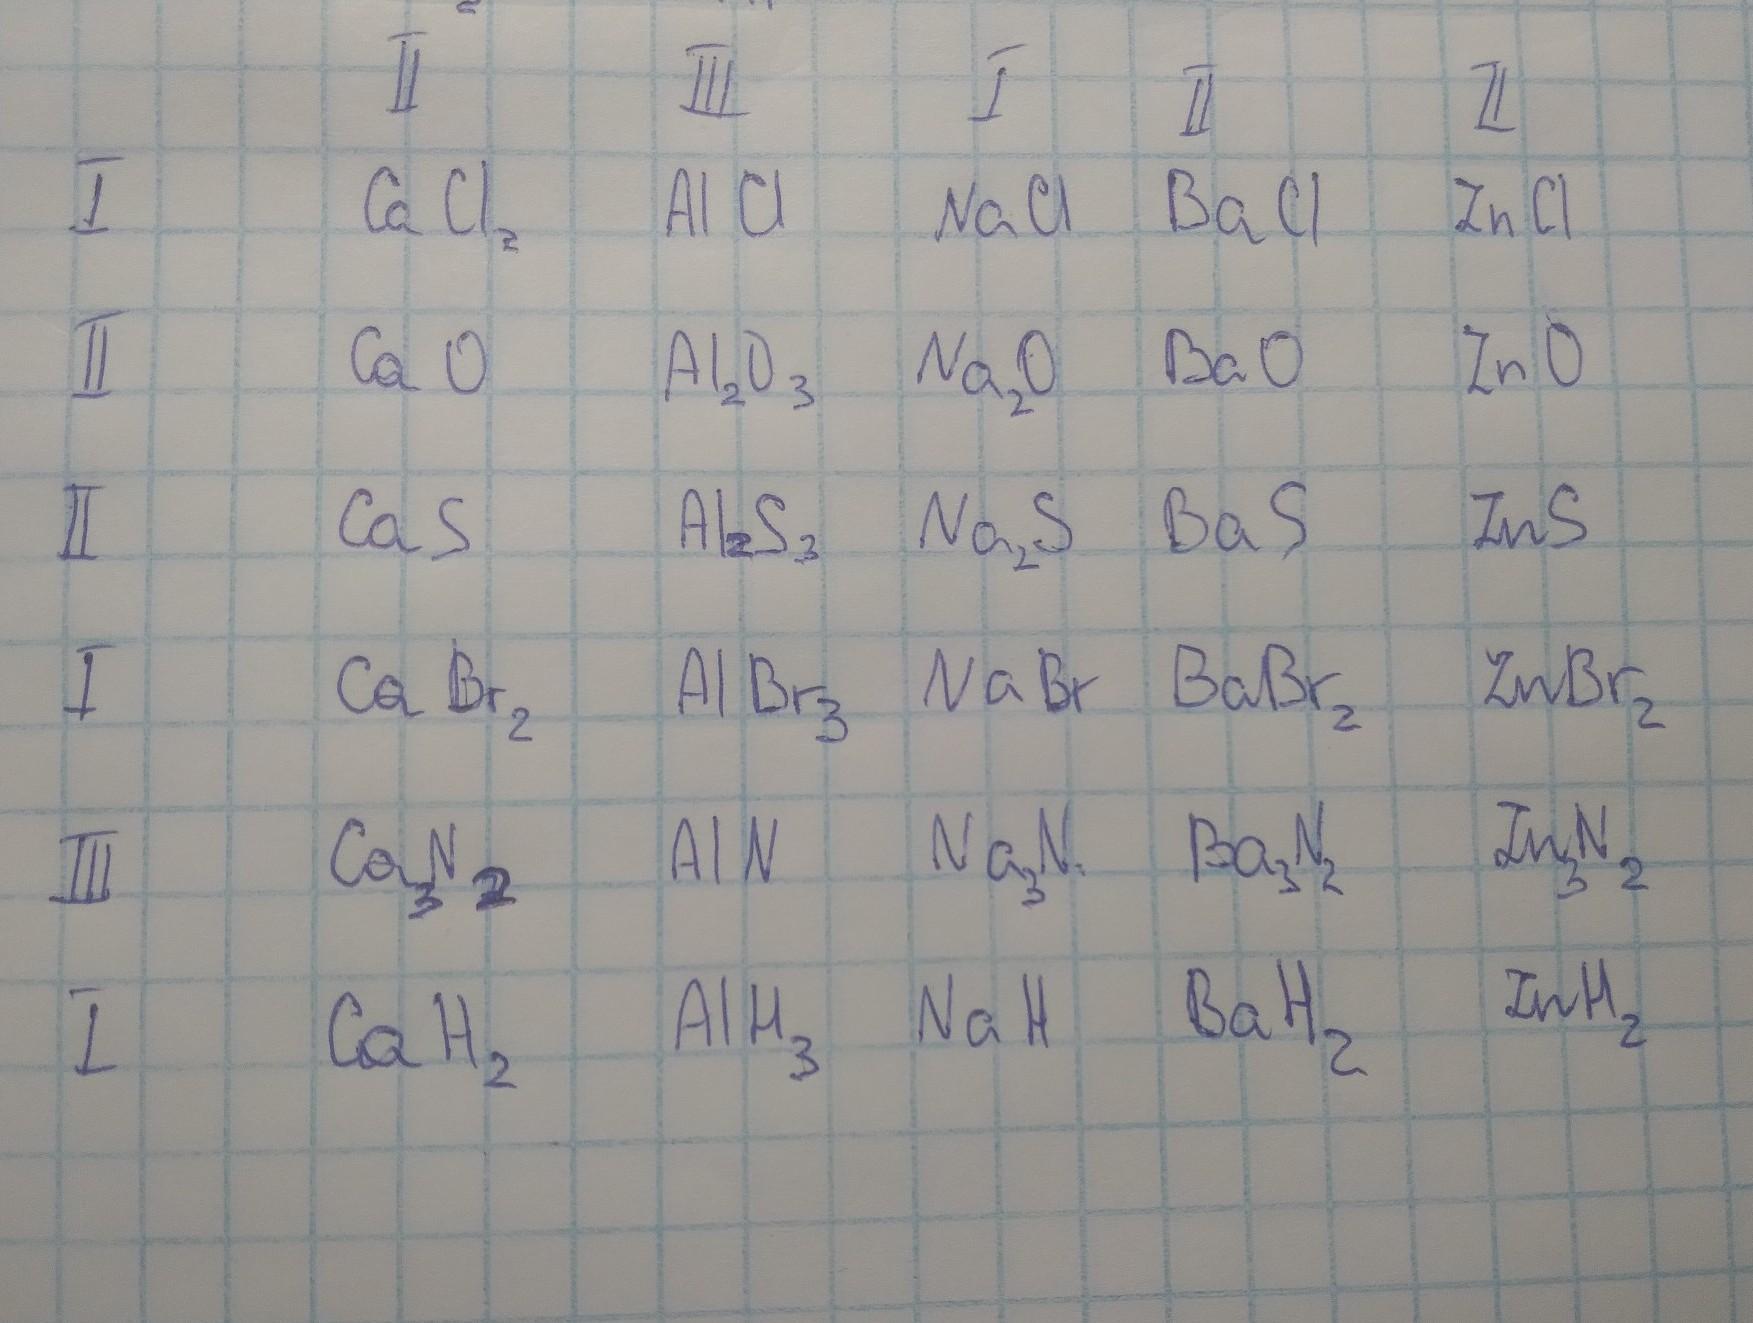 II III I II II
I CaCl₂ AlCl NaCl BaCl ZnCl
II CaO Al₂O₃ Na₂O BaO ZnO
II CaS Al₂S₃ Na₂S BaS ZnS
I CaBr₂ AlBr₃ NaBr BaBr₂ ZnBr₂
III Ca₃N₂ AlN Na₃N Ba₃N₂ Zn₃N₂
I CaH₂ AlH₃ NaH BaH₂ ZnH₂